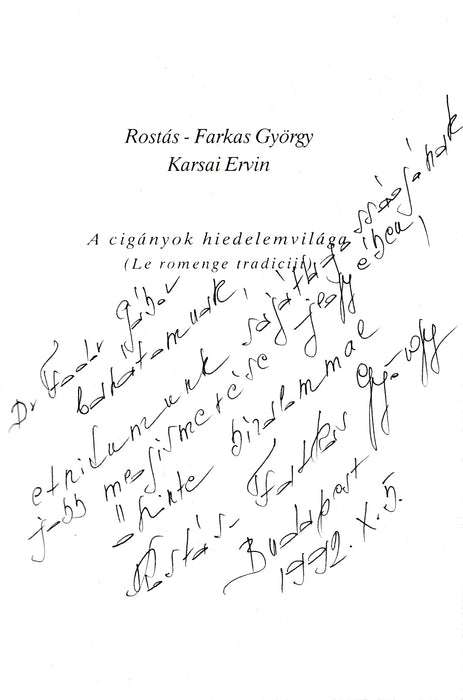 Rostás - Farkas György
Karsai Ervin
A cigányok hiedelemvilága
(Le romenge tradiciji)
Dr Fodor Gábor
barátomnak,
etnikumunk sajátságosságának
jobb megismerése jegyében,
őszinte bizalommal
Rostás- Farkas György
Budapest
1992. X. 5.